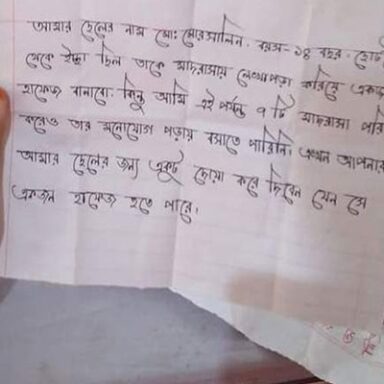 আমার ছেলের নাম মো: মোরসালিন. বয়স-১৪ বছর. ছোট
থেকে ইচ্ছা ছিল তাকে মাদ্রাসায় লেখাপড়া করিয়ে একজ
হাফেজ বানাবো। কিন্তু আমি এই পর্যন্ত ৭ টি মাদ্রাসা পরি
করেও তার মনোযোগ পড়ায় বসাতে পারিনি। এখন আপনার
আমার ছেলের জন্য একটু দোয়া করে দিবেন যেন সে
একজন হাফেজ হতে পারে।